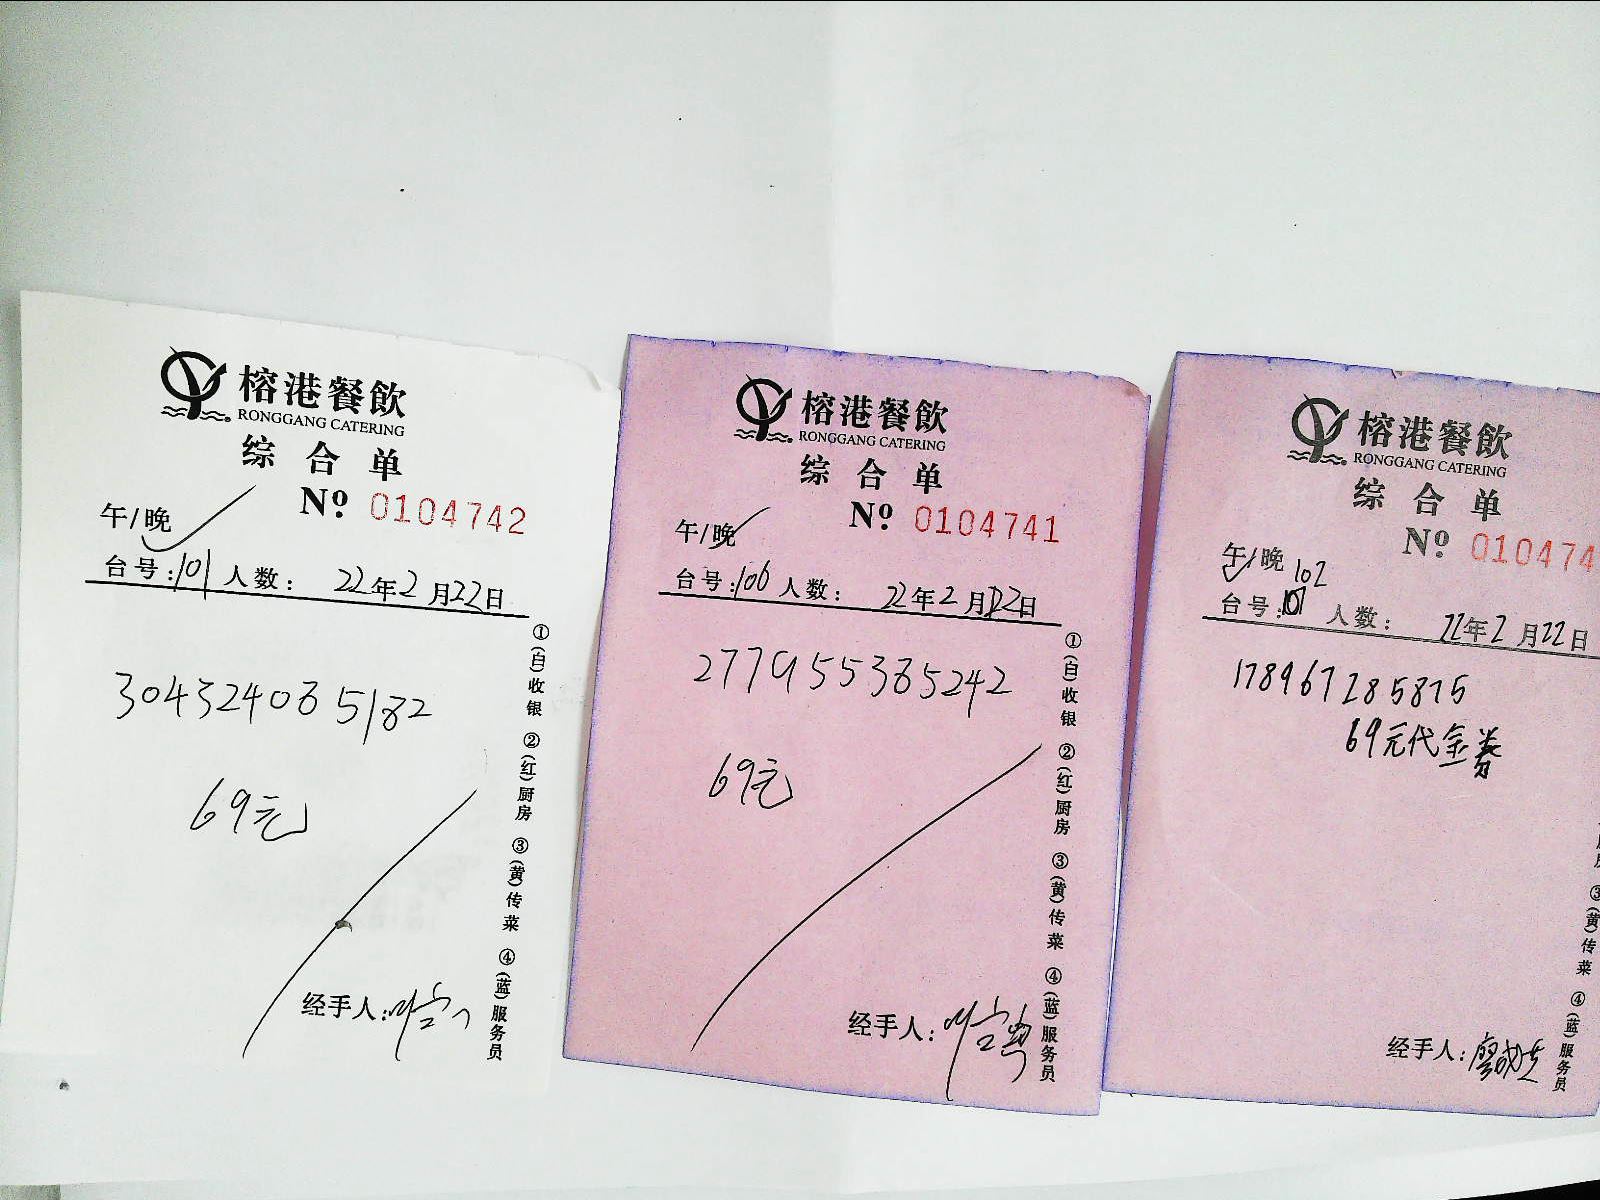 榕港餐飲
RONGGANG CATERING
综合单
Nº. 0104742
午/晚
台号:101 人数: 22年2月22日
304324065182
69元
经手人:
①(白)收银 ②(红)厨房 ③(黄)传菜 ④(蓝)服务员
榕港餐飲
RONGGANG CATERING
综合单
Nº. 0104741
午/晚
台号:106 人数: 22年2月22日
277955365242
69元
经手人:
①(白)收银 ②(红)厨房 ③(黄)传菜 ④(蓝)服务员
榕港餐飲
RONGGANG CATERING
综合单
Nº. 010474
午/晚 102
台号: 人数: 22年2月22日
178967285875
69元代金券
经手人:廖
③(黄)传菜 ④(蓝)服务员